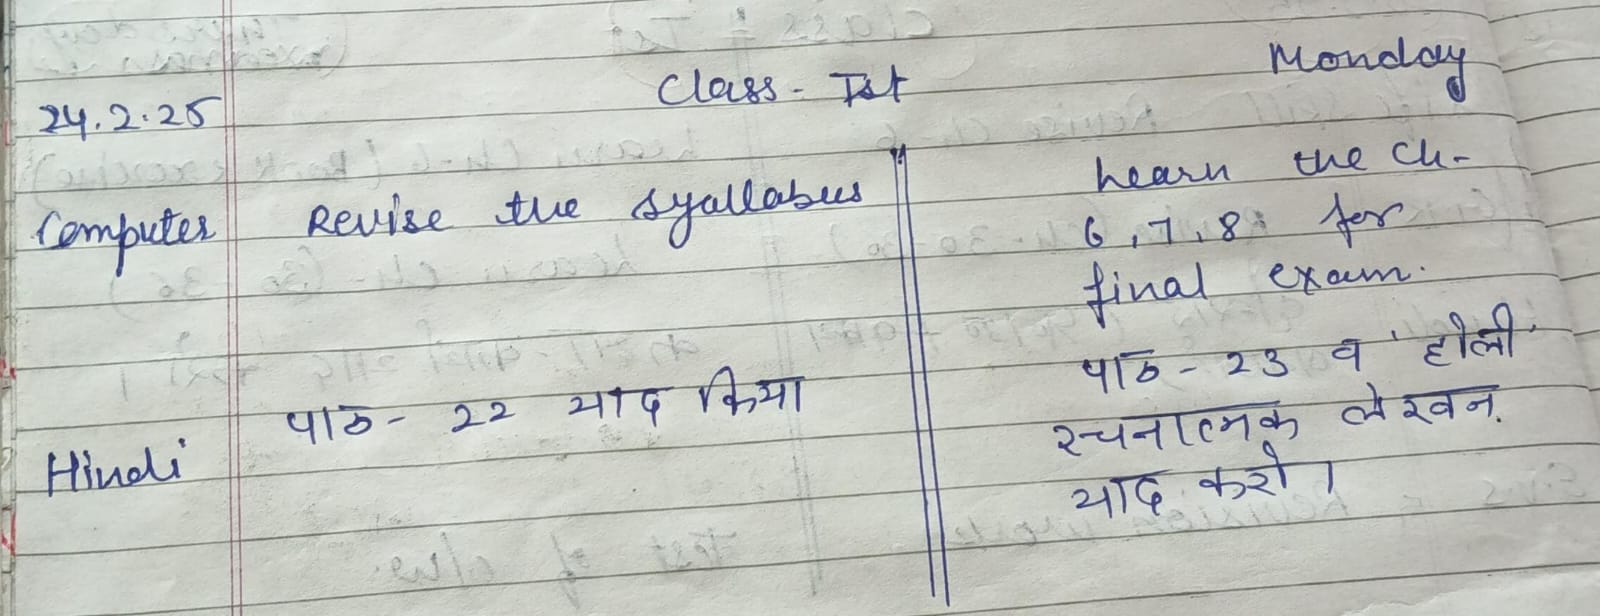 Monday
Class - Ist
24.2.25
Computer Revise the syallabus
Learn the Ch-
6, 7, 8 for
final exam.
Hindi पाठ - 22 याद किया
पाठ - 23 व 'होली'
रचनात्मक लेखन.
याद करो।